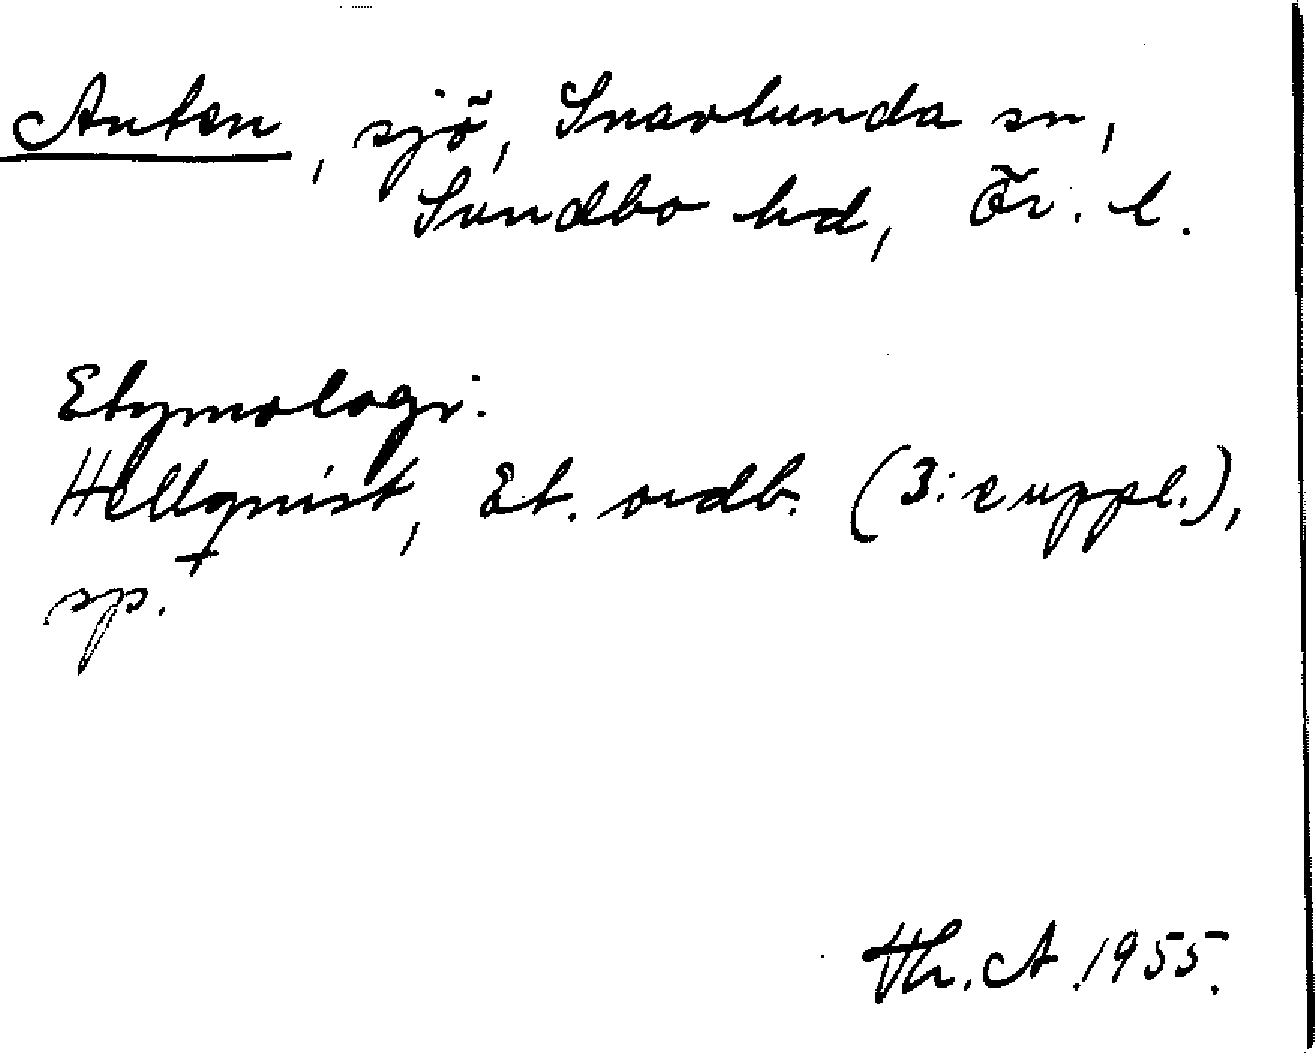 Anten, sjö, Snavlunda sn,
Sundbo hd, Ör. l.
Etymologi:
Hellquist, Et. ordb. (3: e uppl.),
sp.
Th. A. 1955.